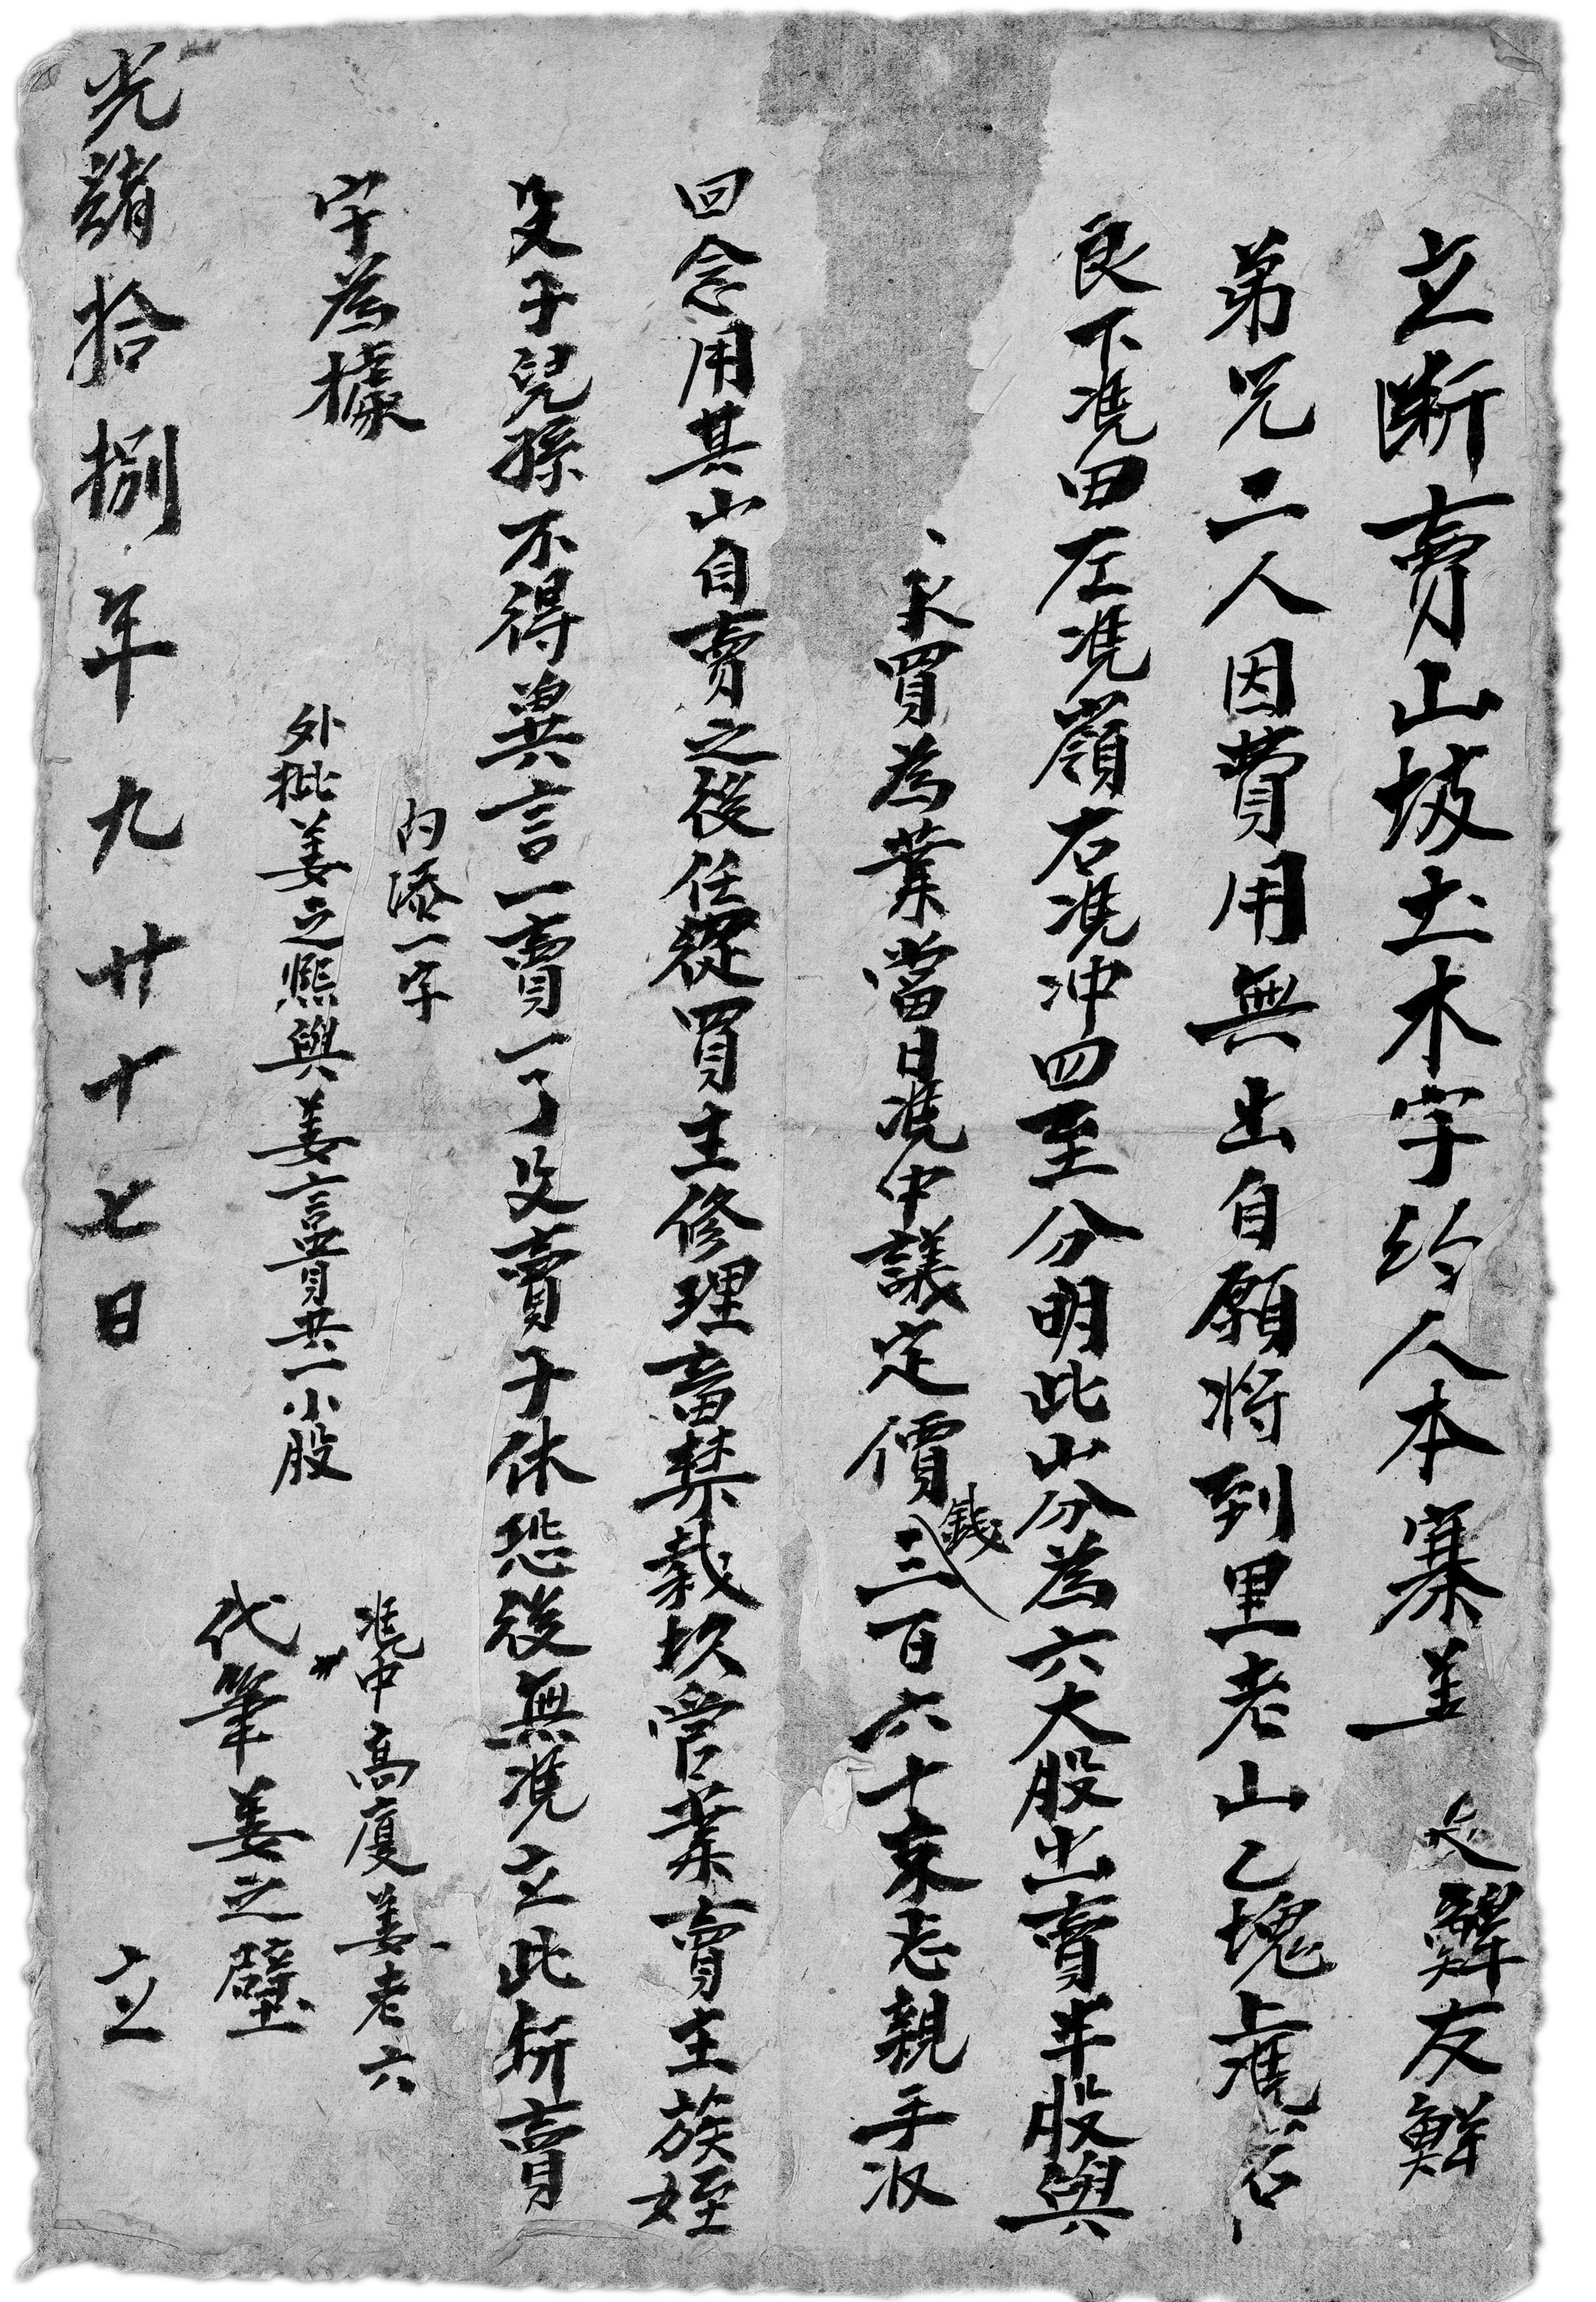 立斷賣山坡土木字約人本寨姜 友鮮
弟兄二人因費用無出自願將到里老山乙塊上凴岩
良下凴田左凴嶺右凴冲四至分明此山分為六大股出賣半股與
買為業當日凴中議定價錢三百六十文 親手收
回念用其山自賣之後任從買主修理畜禁栽杉管業賣主族姪
父子兒孫不得異言一賣一了父賣子休恐後無凴立此斷賣
字為據
内添一字
外批姜之熙與姜言貴共一小股
凴中 姜老六
代筆姜之璧
光緒拾捌年九廿十七日 立